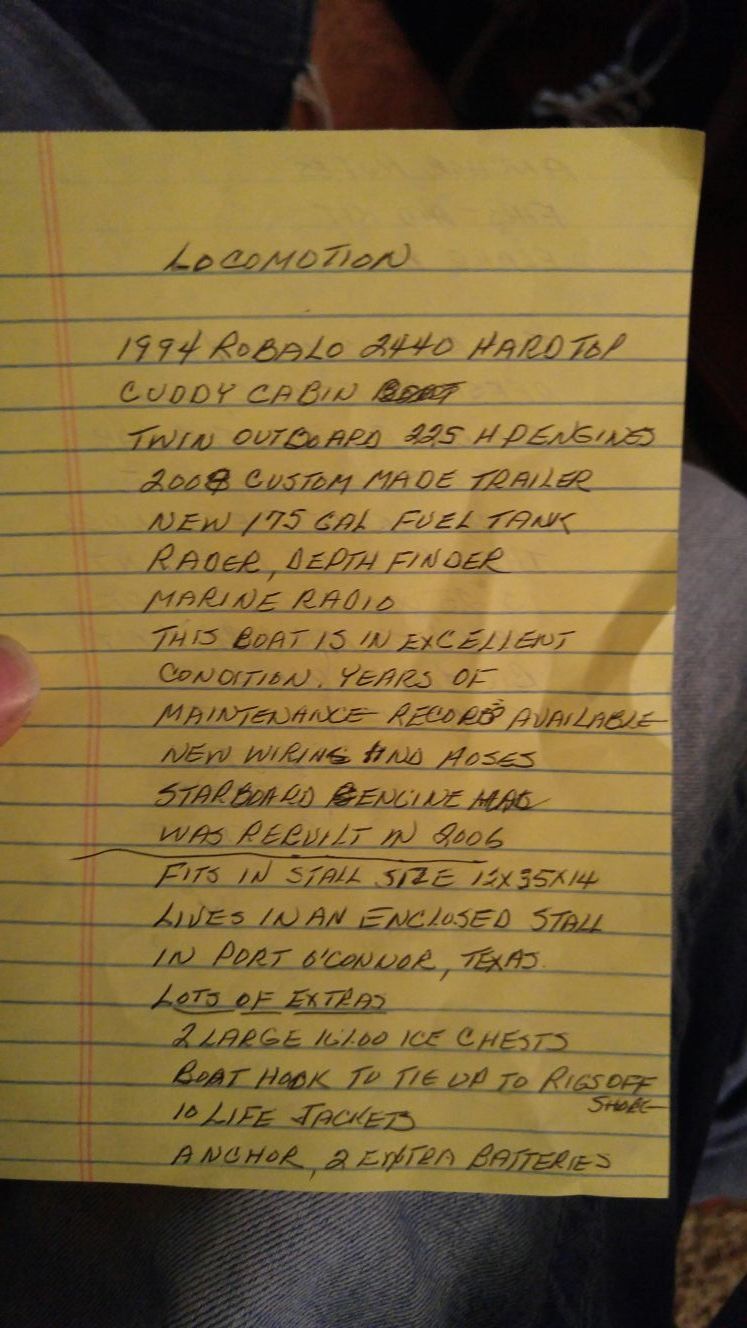 LOCOMOTION
1994 ROBALO 2440 HARD TOP
CUDDY CABIN
TWIN OUTBOARD 225 HP ENGINES
2008 CUSTOM MADE TRAILER
NEW 175 GAL FUEL TANK
RADER, DEPTH FINDER
MARINE RADIO
THIS BOAT IS IN EXCELLENT
CONDITION. YEARS OF
MAINTENANCE RECORDS AVAILABLE
NEW WIRING AND HOSES
STARBOARD ENGINE
WAS REBUILT IN 2006
FITS IN STALL SIZE 12X35X14
LIVES IN AN ENCLOSED STALL
IN PORT O'CONNOR, TEXAS.
LOTS OF EXTRAS
2 LARGE IGLOO ICE CHESTS
BOAT HOOK TO TIE UP TO RIGS OFF
SHORE
10 LIFE JACKETS
ANCHOR, 2 EXTRA BATTERIES